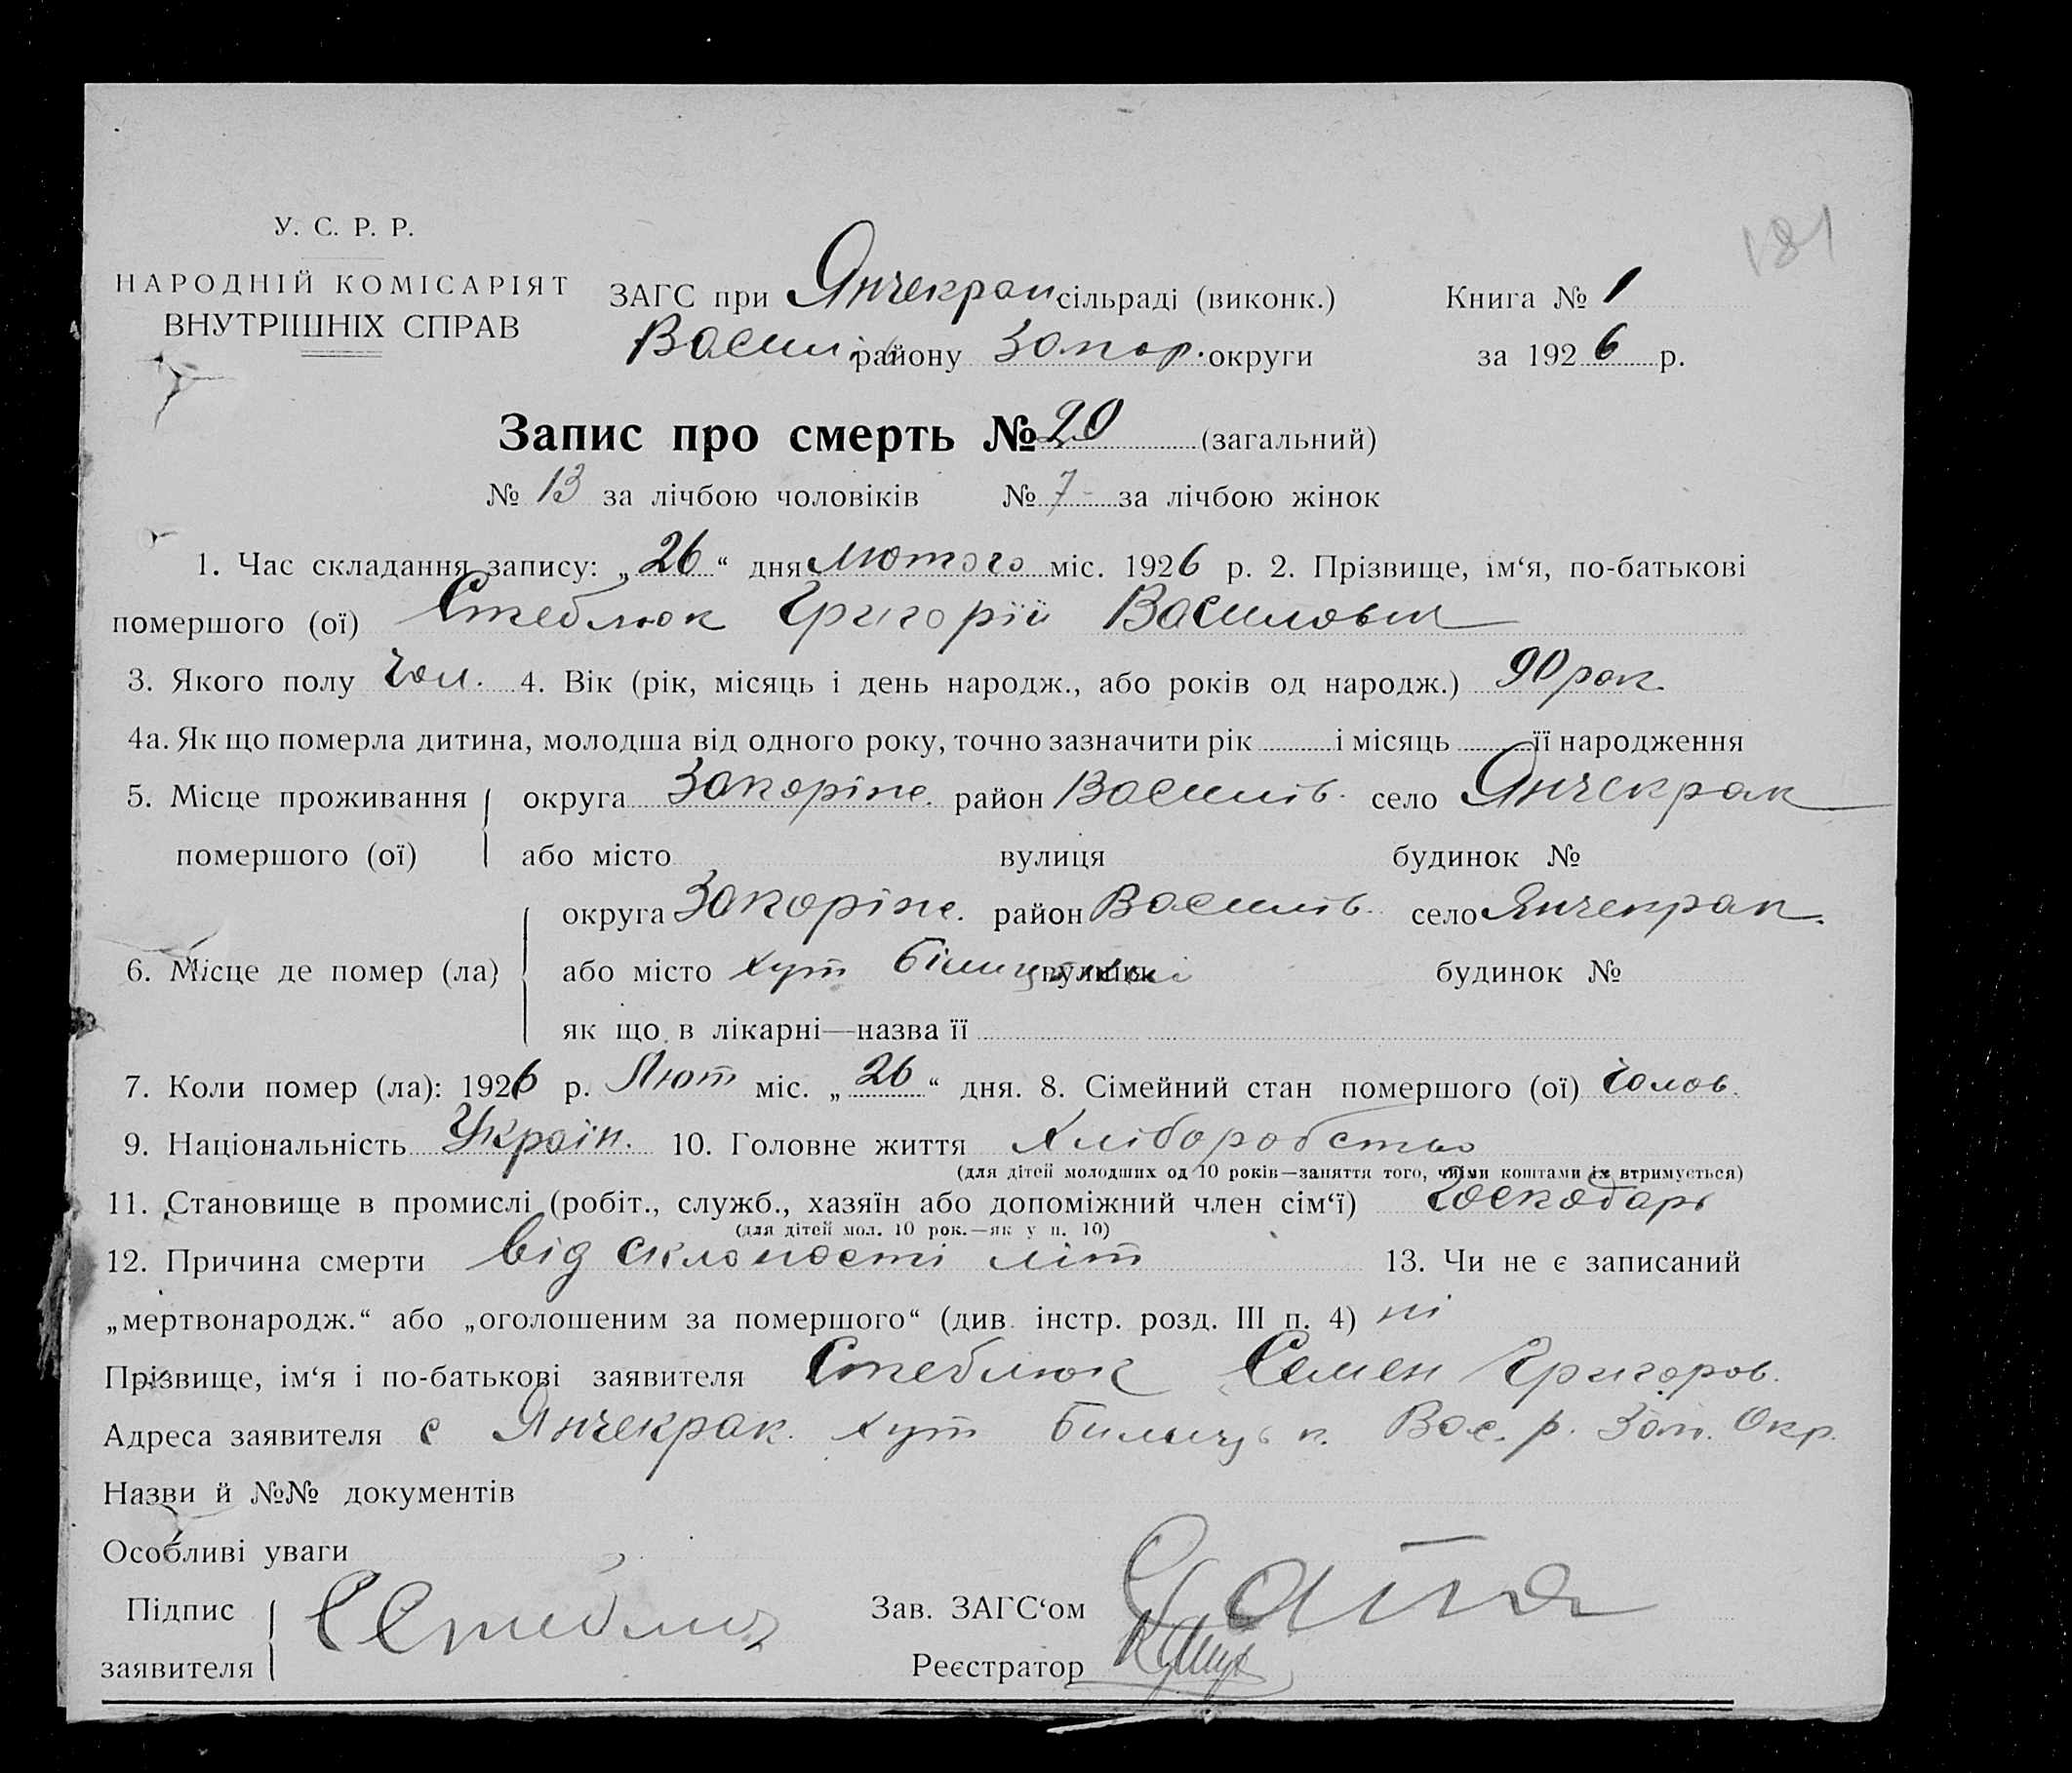 181
У. С. Р. Р.
НАРОДНІЙ КОМІСАРІЯТ
ВНУТРІШНІХ СПРАВ
ЗАГС при Янчекрак сільраді (виконк.) Книга № 1
Василів району Запор. округи за 1926 р.
Запис про смерть № 20 (загальний)
№ 13 за лічбою чоловіків № 7 за лічбою жінок
1. Час складання запису: „26“ дня Лютого міс. 1926 р. 2. Прізвище, ім‘я, по-батькові
помершого (ої) Стеблюк Григорій Василович
3. Якого полу чол. 4. Вік (рік, місяць і день народж., або років од народж.) 90 рок.
4а. Як що померла дитина, молодша від одного року, точно зазначити рік і місяць її народження
5. Місце проживання округа Запоріже. район Василів. село Янчекрак
помершого (ої) або місто вулиця будинок №
округа Запоріже. район Василів. село Янчекрак.
6. Місце де помер (ла) або місто хут вулиця будинок №
як що в лікарні—назва її
7. Коли помер (ла): 1926 р. Лют міс. „26“ дня. 8. Сімейний стан помершого (ої) голов.
9. Національність Україн. 10. Головне життя Хліборобство
(для дітей молодших од 10 років—заняття того, чиїми коштами їх втримується)
11. Становище в промислі (робіт., служб., хазяїн або допоміжний член сім‘ї)
(для дітей мол. 10 рок.—як у п. 10)
12. Причина смерти від склоности літ 13. Чи не є записаний
„мертвонародж.“ або „оголошеним за помершого“ (див. інстр. розд. III п. 4) ні
Прізвище, ім‘я і по-батькові заявителя Стеблюк Семен Григоров.
Адреса заявителя с Янчекрак. хут Вас. р. Зап. Окр.
Назви й №№ документів
Особливі уваги
Підпис Зав. ЗАГС‘ом
заявителя С Стеблюк Реєстратор